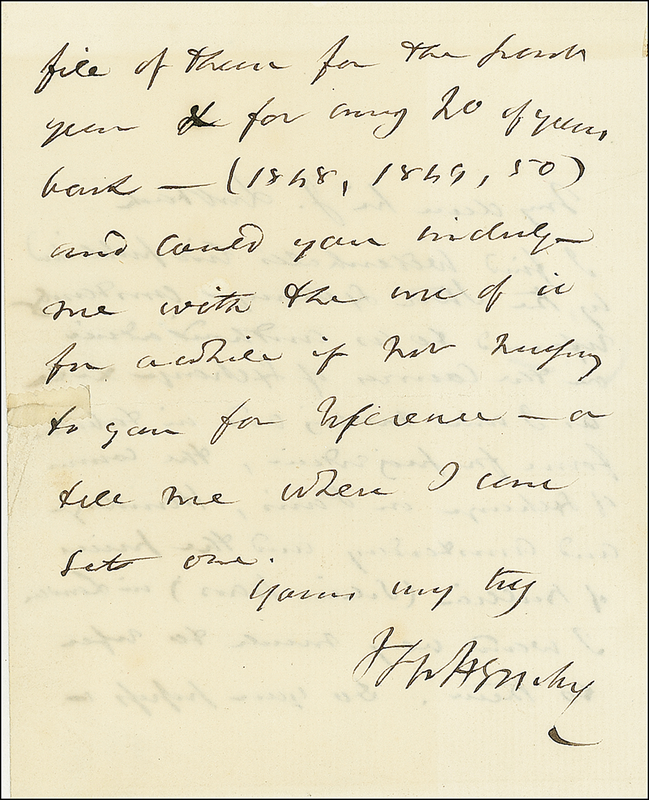 file of them for the
year & for any 20 of years
back — (1848, 1849, 50)
and could you indulge
me with the use of it
for awhile if not
to you for reference — or
tell me where I can
get one.
Yours